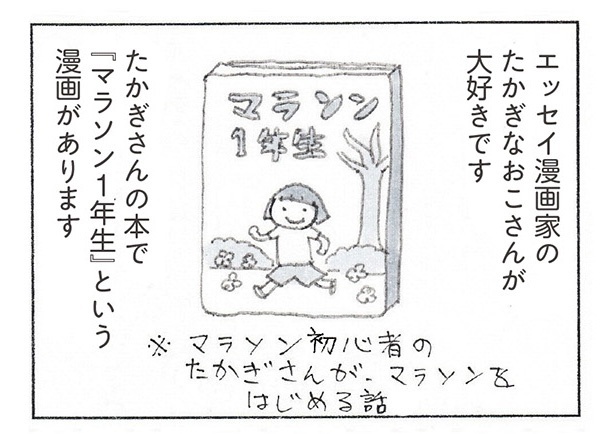 エッセイ漫画家の
たかぎなおこさんが
大好きです
マラソン
1年生
たかぎさんの本で
『マラソン1年生』という
漫画があります
※マラソン初心者の
たかぎさんが、マラソンを
はじめる話